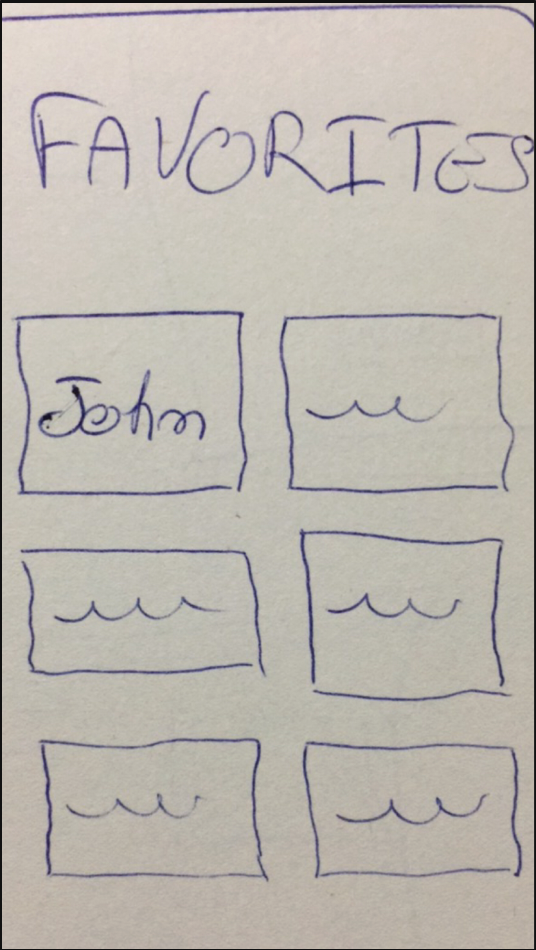 FAVORITES
John